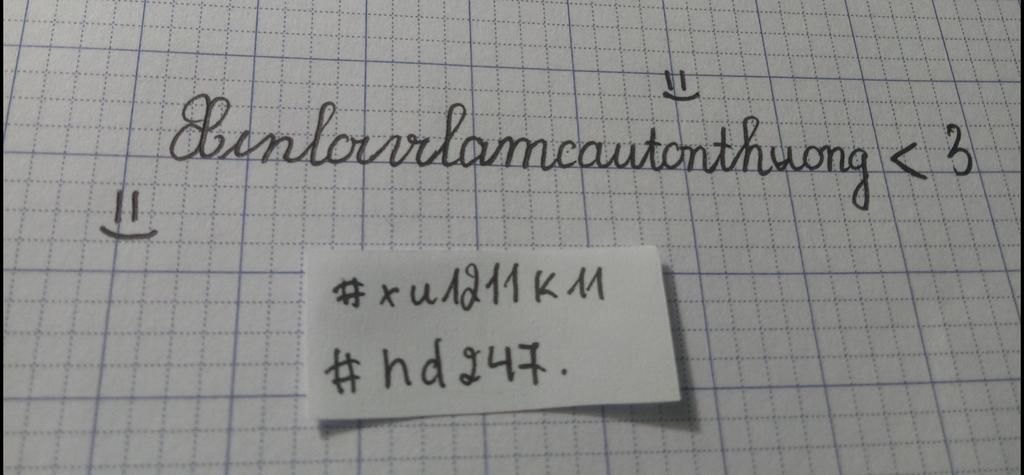 Xinloivvlamcautonthuong < 3
#xu1211k11
#hd247.